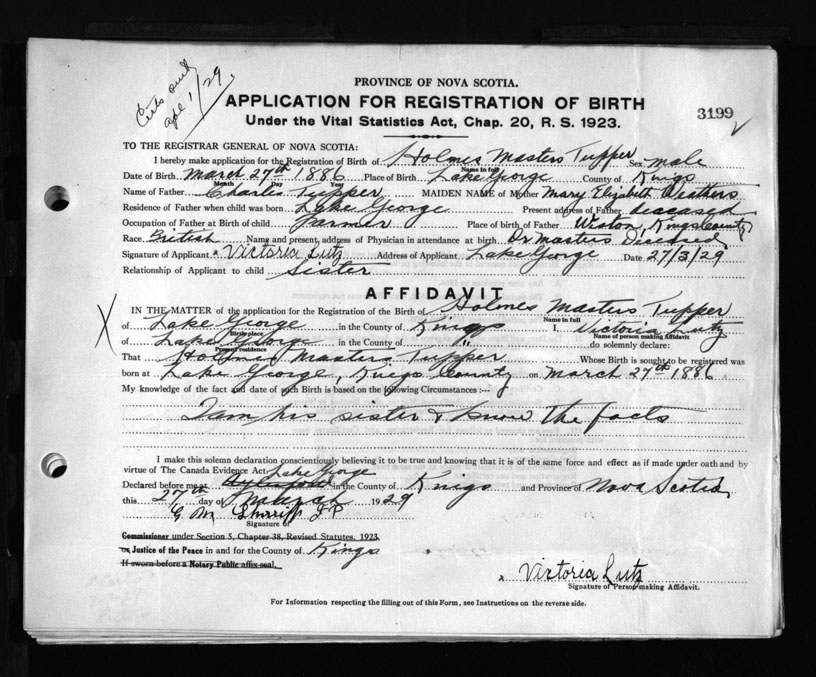 Certs sent
Apl 1/29.
PROVINCE OF NOVA SCOTIA.
APPLICATION FOR REGISTRATION OF BIRTH
3199
Under the Vital Statistics Act, Chap. 20, R. S. 1923.
TO THE REGISTRAR GENERAL OF NOVA SCOTIA:
I hereby make application for the Registration of Birth of Holmes Masters Tupper Sex male
Name in full
Date of Birth March 27th 1886 Place of Birth Lake George County of Kings
Month Day Year
Name of Father Charles Tupper MAIDEN NAME of Mother Mary Elizabeth Weathers
Residence of Father when child was born Lake George Present address of Father deceased
Occupation of Father at Birth of child farmer Place of birth of Father Weston, Kings County
Race British Name and present address of Physician in attendance at birth Dr Masters Deceased
Signature of Applicant Victoria Lutz Address of Applicant Lake George Date 27/3/29
Relationship of Applicant to child Sister
AFFIDAVIT
IN THE MATTER of the application for the Registration of the Birth of Holmes Masters Tupper
Name in full
X
of Lake George in the County of Kings I, Victoria Lutz
Birth place
Name of person making Affidavit
of Lake George in the County of " do solemnly declare:
Present residence
That Holmes Masters Tupper Whose Birth is sought to be registered was
born at Lake George, Kings County on March 27th 1886
My knowledge of the fact and date of such Birth is based on the following Circumstances :—
I am his sister & know the facts
I make this solemn declaration conscientiously believing it to be true and knowing that it is of the same force and effect as if made under oath and by
virtue of The Canada Evidence Act.
Lake George
Declared before me at Aylesford in the County of Kings and Province of Nova Scotia
this 27th day of March 1929
G M Sherriff J P
Signature of
Commissioner under Section 5, Chapter 38, Revised Statutes, 1923,
or Justice of the Peace in and for the County of Kings
If sworn before a Notary Public affix seal.
x Victoria Lutz
Signature of Person making Affidavit.
For Information respecting the filling out of this Form, see Instructions on the reverse side.